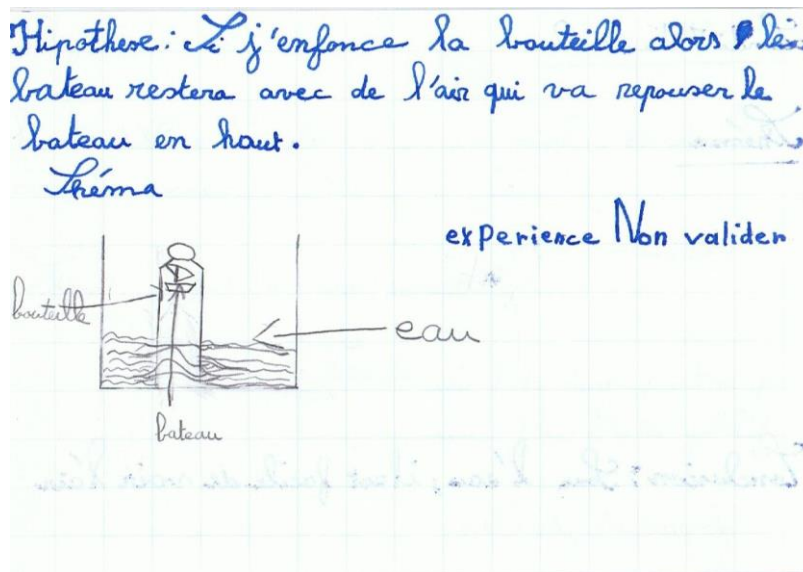 Hipothese : Si j'enfonce la bouteille alors le
bateau restera avec de l'air qui va repouser le
bateau en haut.
Shéma
experience Non valider
bouteille
eau
bateau